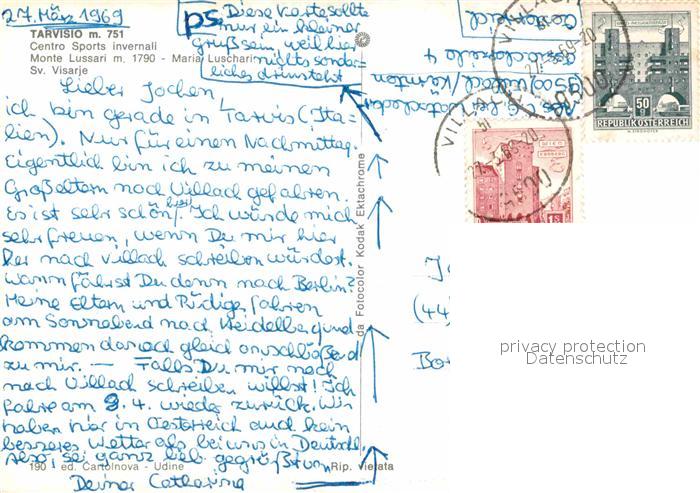 27. März 1969
TARVISIO m. 751
Centro Sports invernali
Monte Lussari m. 1790 - Maria Luschari
Sv. Visarje
PS Diese Karte sollte
nur ein kleiner
gruß sein, weil hier
nichts sonder
liches drinsteht
Lieber Jochen,
ich bin gerade in Tarvis (Ita-
lien). Nur für einen Nachmittag.
Eigentlich bin ich zu meinen
Großeltern nach Villach gefahren.
Es ist sehr schön hier. Ich würde mich
sehr freuen, wenn Du mir hier
her nach Villach schreiben würdest.
Wann fährst Du denn nach Berlin?
Meine Eltern und Rüdiger fahren
am Sonnabend nach Heidelberg und
kommen danach gleich anschließend
zu mir. — Falls Du mir noch
nach Villach schreiben willst! Ich
fahre am 9.4. wieder zurück. Wir
haben hier in Oesterreich auch kein
besseres Wetter als bei uns in Deutschl.
Also, sei ganz lieb gegrüßt von
Deiner Catharina
190 - ed. Cartolnova - Udine
Rip. vietata
da Fotocolor Kodak Ektachrome
Oesterreich
9500 Villach/Kärnten
VILLACH
27.-3.69-20
9500
50 g
REPUBLIK ÖSTERREICH
VILLACH
27.-3.69-20
9500
WIEN
ERDBERG
1S
J
(44)
privacy protection
Datenschutz